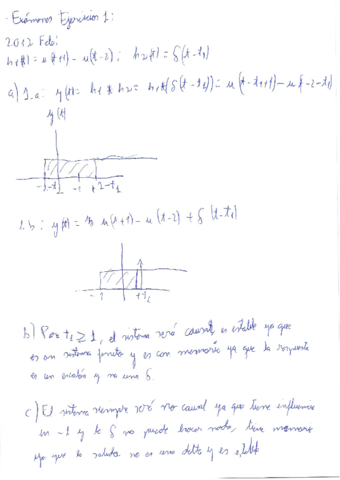 - Exámenes Ejercicios 1:
2012 Feb:
h1(t) = u(t+1) - u(t-2); h2(t) = δ(t-t1)
a) 1.a: y(t) = h1 * h2 = h1*(δ(t-t1)) = u(t-t1+1) - u(t-2-t1)
y(t)
1.b: y(t) = u(t+1) - u(t-2) + δ(t-t1)
-1 +t1
b) Para t1 ≥ 1, el sistema será causal, es estable ya que
es un sistema finito y es con memoria ya que la respuesta
es un escalón y no una δ.
c) El sistema siempre será no causal ya que tiene influencia
en -1 y la δ no puede hacer nada, tiene memoria
ya que la salida no es una delta y es estable